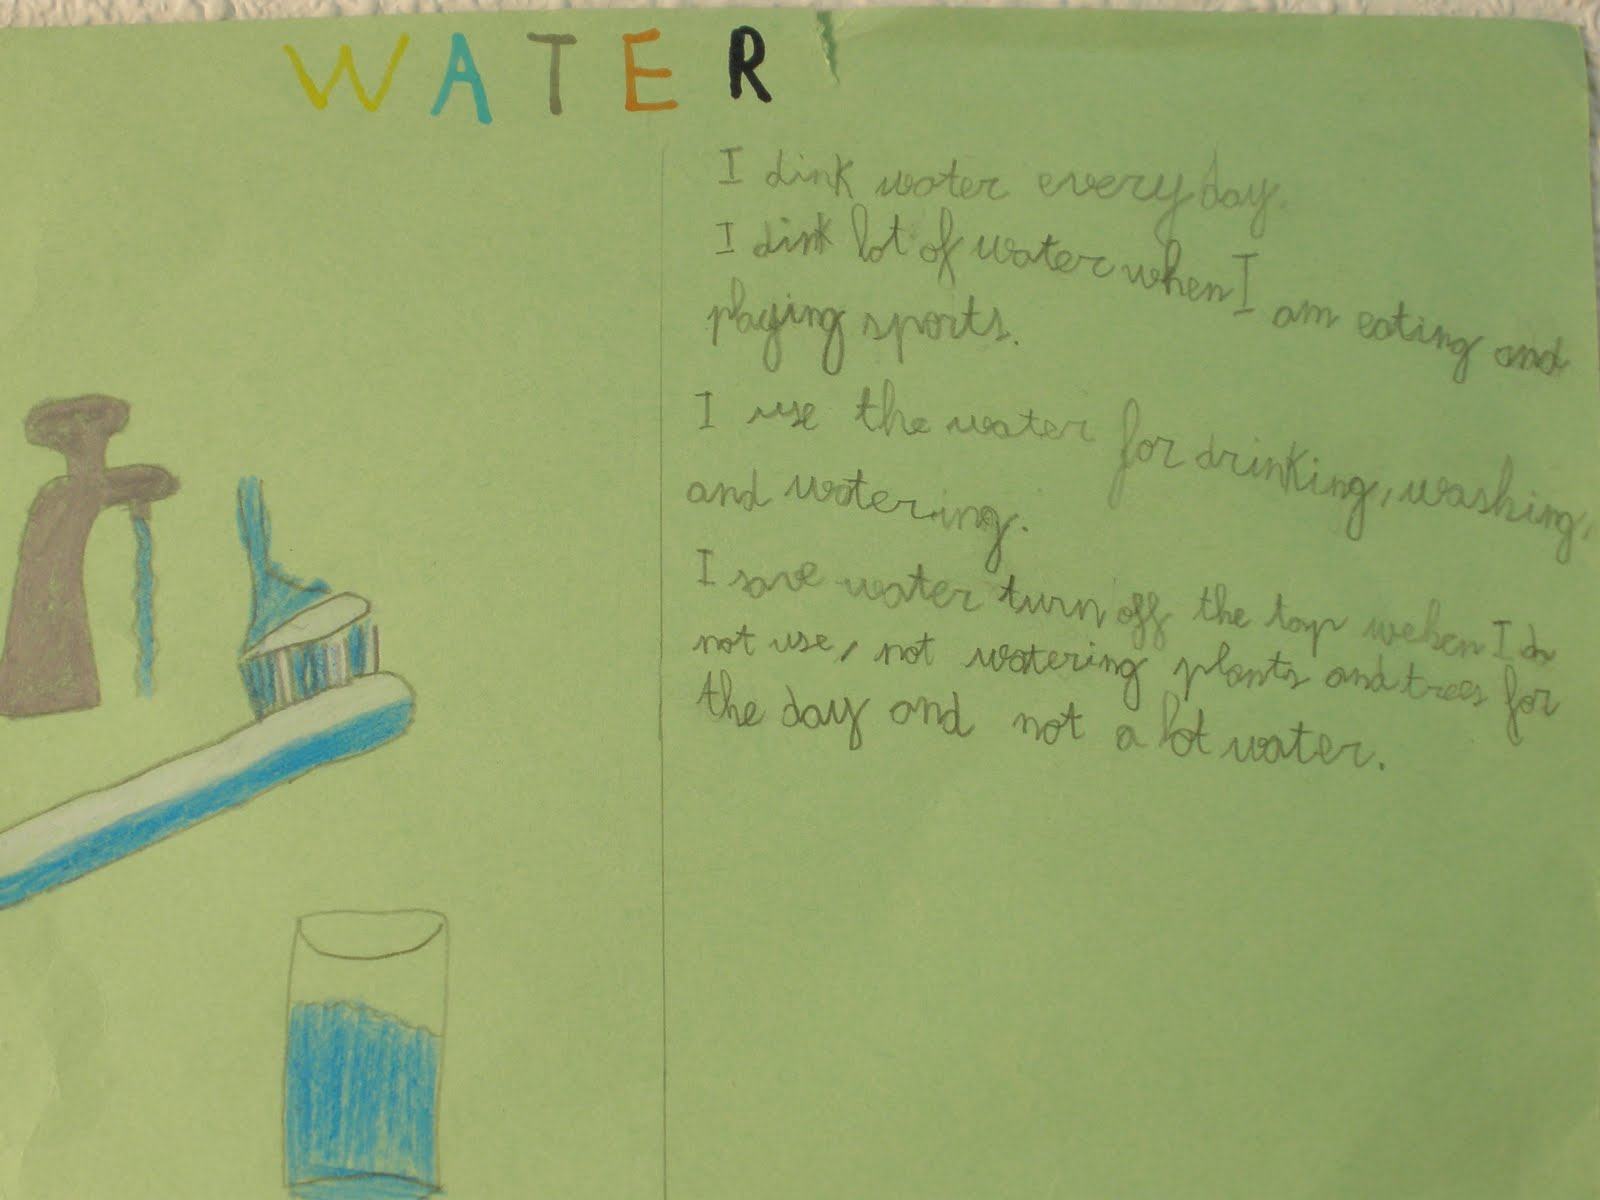 WATER
I dink water every day.
I dink lot of water when I am eating and
playing sports.
I use the water for drinking, washing,
and watering.
I save water turn off the tap wehen I do
not use, not watering plants and trees for
the day and not a lot water.